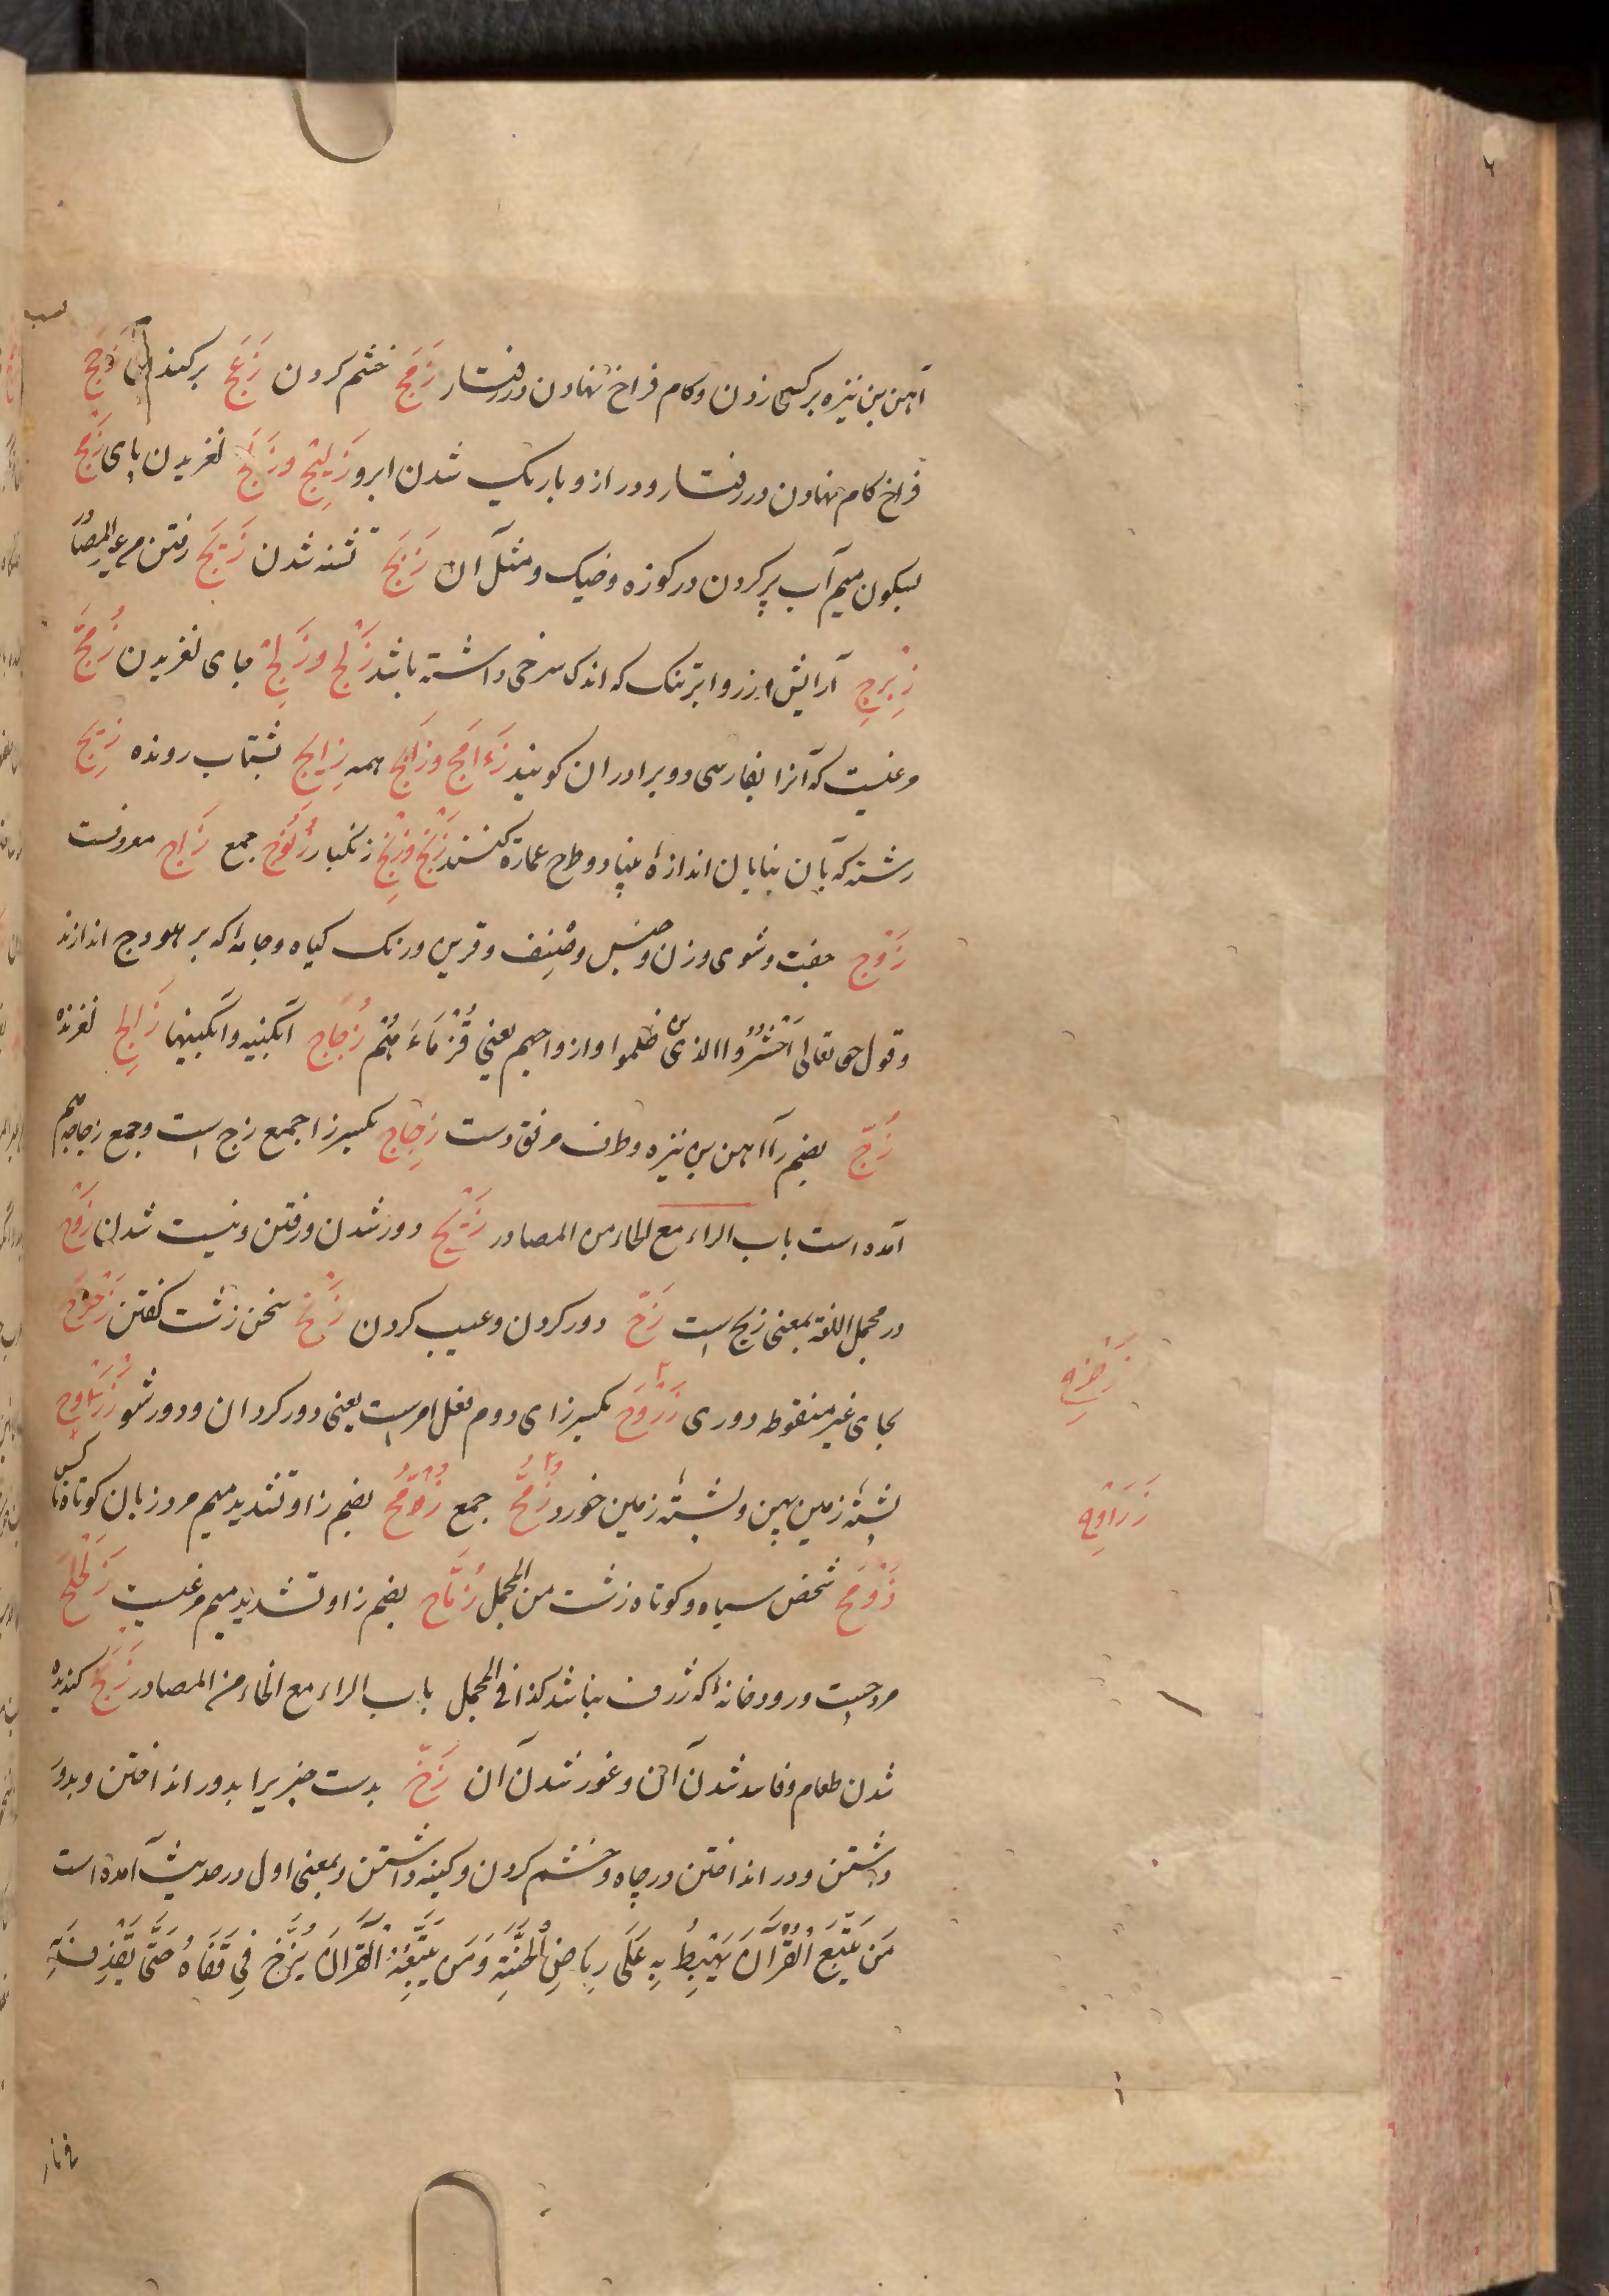 آهن بن نیزه بر کسی زدن و کام فراخ نهادن در رفتار زَمَج خشم کردن زَعَج برکندن زَجَج
فراخ کام نهادن در رفتار و دراز و باریک شدن ابرو زَلِیْج و زَلَج لغزیدن پای زَمْج
بسکون میم آب پر کردن در کوزه و خیک و مثل آن زَنَج تشنه شدن زَیَج رفتن من غیر المصادر
زِبْرِج آرایش و زر و ابر تنک که اندک سرخی داشته باشد زَلْج و زَلِج جای لغزیدن زُمَّج
مرغیست که آنرا بفارسی دو برادران گویند زَءَامَج و زَاَمَج همه زِالِج بشتاب رونده زِیْج
رشته که بآن بنایان اندازهٔ بنیاد و طرح عمارة کنند زَنْج و زِنْج زنگبار زُنُوْج جمع زَاج معروفست
زَوْج جفت و شوی و زن و جنس و صنف و قرین و رنگ گیاه و جامهٔ که بر هودج اندازند
و قول حق تعالی اُحْشُرُوا الذین ظلموا و ازواجهم یعنی قُرَنَاءَهُمْ زُجَاج آبگینه و آبگینها زَالِج لغزنده
زُجّ بضم زا آهن بن نیزه و طرف مرفق دست زِجَاج بکسر زا جمع زج است و جمع زجاجه هم
آمده است باب الزاء مع الحاء من المصادر زَیْح دور شدن و رفتن و نیست شدن زَوْح
در مجمل اللغة بمعنی زیح است زَحّ دور کردن و عیب کردن زَنْح سخن زشت گفتن زَحْزَحَ
بحای غیر منقوطه دوری زَرْوَح بکسر زای دوم فعل امر است یعنی دور کردان و دور شو زَرَاوِح
پشتهٔ زمین پهن و پشتهٔ زمین خورد زُمَّح جمع زُوَّمَح بضم زا و تشدید میم مرد زبان کوتاه ناکس
زَوْمَح شخص سیاه و کوتاه زشت من المجمل زُمَّاح بضم زا و تشدید میم مرغیست زَلَحْلَح
مرد چست و رودخانهٔ که ژرف نباشد کذا فی المجمل باب الزاء مع الخاء من المصادر زَنَخ کندیده
شدن طعام و فاسد شدن آن و غور شدن آن زَخّ بدست چیزیرا بدور انداختن و بدور
داشتن و در انداختن در چاه و خشم کردن و کینه داشتن و بمعنی اول در حدیث آمده است
مَن یَتَّبِعِ الْقُرْآنَ یَهْبِطُ بِهِ عَلَی رِیَاضِ الْجَنَّةِ وَمَن یَتَّبِعُهُ الْقُرْآنُ یُزَخُّ فِی قَفَاهُ حَتَّی یَقْذِفَ بِهِ
زَحْزِح
زَرَاوِح
فی نار